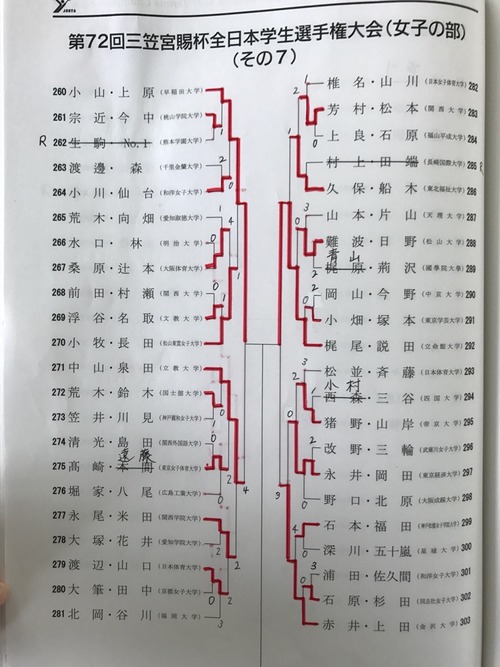 第72回三笠宮賜杯全日本学生選手権大会(女子の部)
(その7)
260 小山・上原 (早稲田大学)
261 宗近・今中 (桃山学院大学)
R 262 生駒・No.1 (熊本学園大学)
263 渡邊・森 (千里金蘭大学)
264 小川・仙台 (和洋女子大学)
265 荒木・向畑 (愛知淑徳大学)
266 水口・林 (明治大学)
267 桑原・辻本 (大阪体育大学)
268 前田・村瀬 (関西大学)
269 浮谷・名取 (文教大学)
270 小牧・長田 (松山東雲女子大学)
271 中山・泉田 (立教大学)
272 荒木・鈴木 (国士舘大学)
273 笠井・川見 (神戸親和女子大学)
274 清光・島田 (関西外国語大学)
遠藤
275 高崎・本間 (東京女子体育大学)
276 堀家・八尾 (広島工業大学)
277 永尾・米田 (関西学院大学)
278 大塚・花井 (愛知学院大学)
279 渡辺・山口 (日本体育大学)
280 大筆・田中 (京都女子大学)
281 北岡・谷川 (福岡大学)
椎名・山川 (日本女子体育大学) 282
芳村・松本 (関西大学) 283
上良・石原 (福山平成大学) 284
村上・田端 (長崎国際大学) 285 R
久保・船木 (東北福祉大学) 286
山本・片山 (天理大学) 287
難波・日野 (松山大学) 288
青山
梶原・荊沢 (國學院大學) 289
岡山・今野 (中京大学) 290
小畑・塚本 (東京学芸大学) 291
梶尾・説田 (立命館大学) 292
松並・斉藤 (日本体育大学) 293
小村
西森・三谷 (四国大学) 294
猪野・山岸 (帝京大学) 295
改野・三輪 (武庫川女子大学) 296
永井・岡田 (東京経済大学) 297
野口・北原 (大阪成蹊大学) 298
石本・福田 299
深川・五十嵐 (星城大学) 300
浦田・佐久間 (和洋女子大学) 301
石原・杉田 (同志社女子大学) 302
赤井・上田 (金沢大学) 303